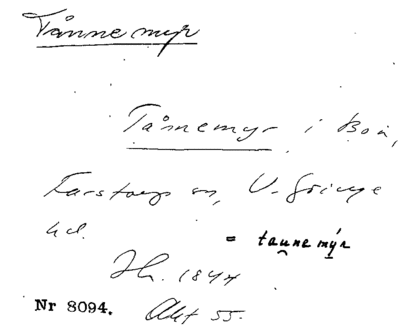 Tånnemyr
Tånnemyr i Boa,
Farstorps sn, V. Göinge
hd.
= taunemýr
Jh. 1844
Nr 8094. Akt 55.